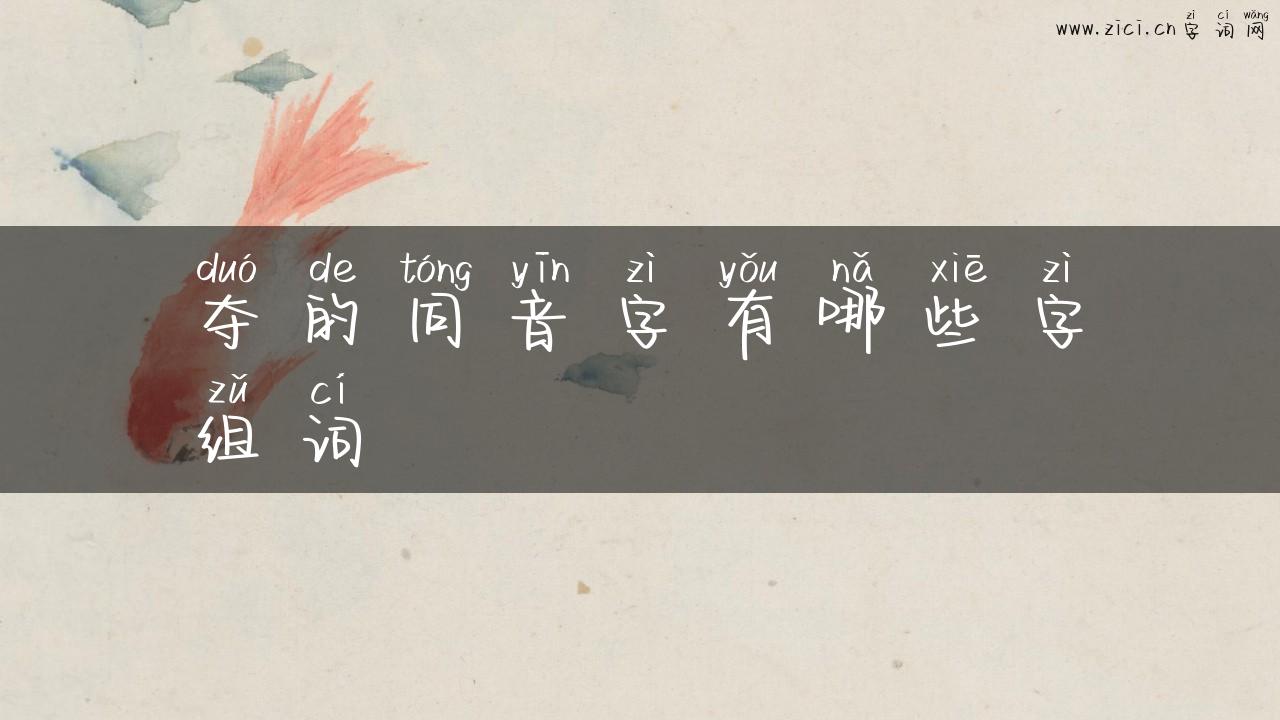 zì cí wǎng
www.zici.cn 字 词 网
duó de tóng yīn zì yǒu nǎ xiē zì
夺 的 同 音 字 有 哪 些 字
zǔ cí
组 词